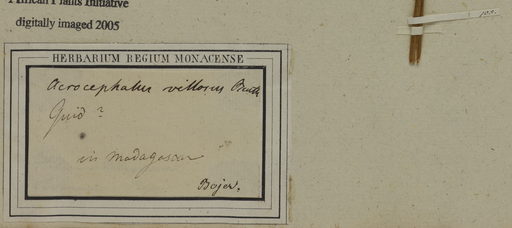 African Plants Initiative
digitally imaged 2005
HERBARIUM REGIUM MONACENSE
Acrocephalus villosus Benth
Quid?
in Madagascar
Bojer.